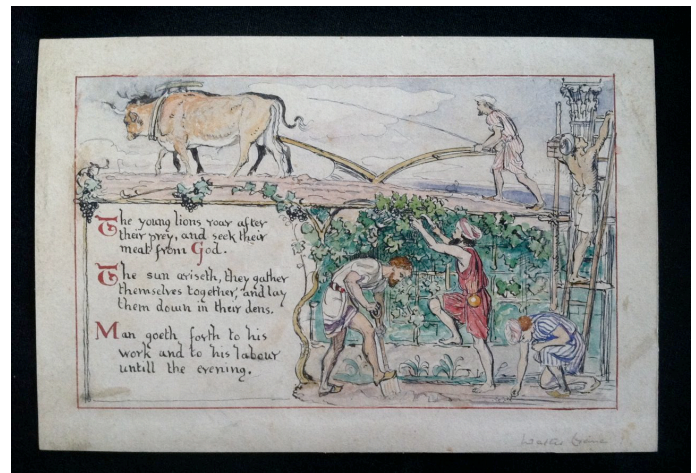 The young lions roar after
their prey, and seek their
meat from God.
The sun ariseth, they gather
themselves together, and lay
them down in their dens.
Man goeth forth to his
work and to his labour
untill the evening.
Walter Crane